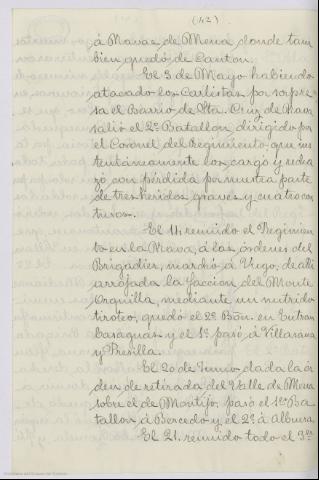 (42)
á Navas de Mena donde tam
bien quedó de Canton.
El 3 de Mayo habiendo
atacado los Carlistas por sorpre
sa el Barrio de Sta. Cruz de Nava
salió el 2º Batallon, dirigido por
el Coronel del Regimiento, que ins
tentaneamente los cargó y recha
zó con pérdida por nuestra parte
de tres heridos graves y cuatro con
tusos.
El 14 reunido el Regimien
to en la Nava, á las órdenes del
Brigadier, marchó á Vivgo, de allí
arrojada la facción del Monte
Orquilla, mediante un nutrido
tiroteo, quedó el 2º Bon. en Entram
basaguas y el 1º pasó á Villasana
y Presilla.
El 20 de Junio dada la ór
den de retirada del Valle de Mena
sobre el de Montijo, pasó el 1er Ba
tallon á Bercedo y el 2º á
El 21, reunido todo el 3er